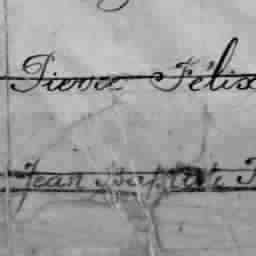 Pierre Félix
Jean Baptiste